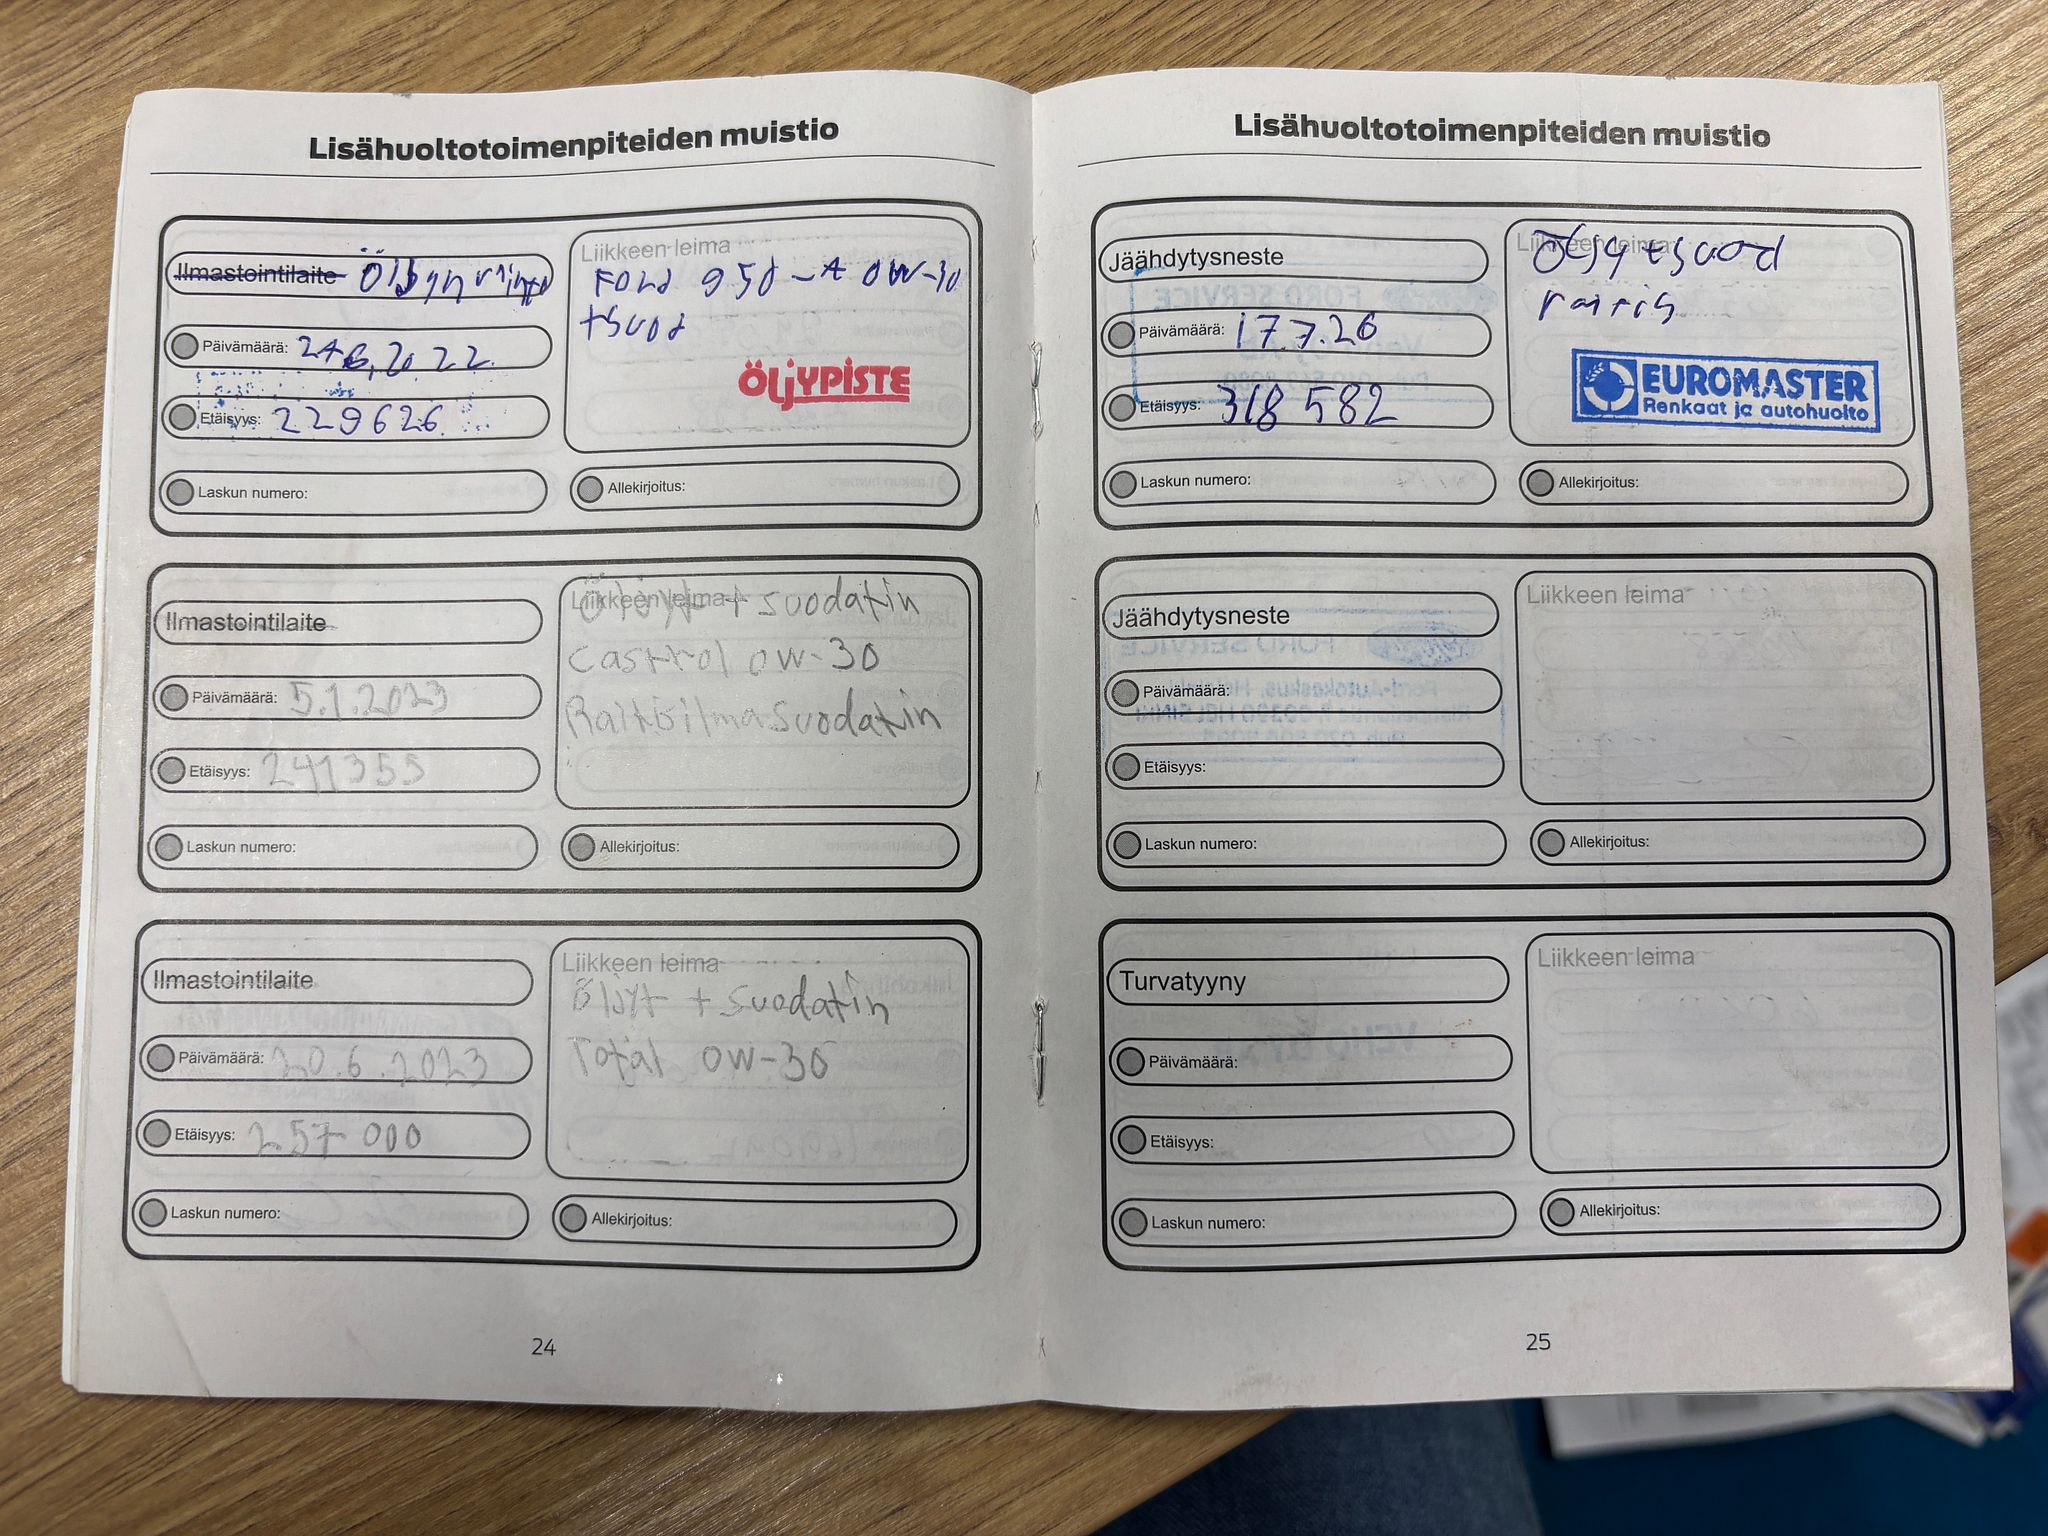 Lisähuoltotoimenpiteiden muistio
Ilmastointilaite
Liikkeen leima
Ford 950-A 0W-30
+suod
ÖLJYPISTE
Päivämäärä: 27.6.2022
Etäisyys: 229626
Laskun numero:
Allekirjoitus:
Ilmastointilaite
Liikkeen leima
Öljyt + suodatin
Castrol 0W-30
Raitisilmasuodatin
Päivämäärä: 5.1.2023
Etäisyys: 241355
Laskun numero:
Allekirjoitus:
Ilmastointilaite
Liikkeen leima
Öljyt + suodatin
Total 0W-30
Päivämäärä: 20.6.2023
Etäisyys: 257 000
Laskun numero:
Allekirjoitus:
24
Lisähuoltotoimenpiteiden muistio
Jäähdytysneste
Liikkeen leima
EUROMASTER
Renkaat ja autohuolto
Päivämäärä: 17.7.26
Etäisyys: 318 582
Laskun numero:
Allekirjoitus:
Jäähdytysneste
Liikkeen leima
Päivämäärä:
Etäisyys:
Laskun numero:
Allekirjoitus:
Turvatyyny
Liikkeen leima
Päivämäärä:
Etäisyys:
Laskun numero:
Allekirjoitus:
25